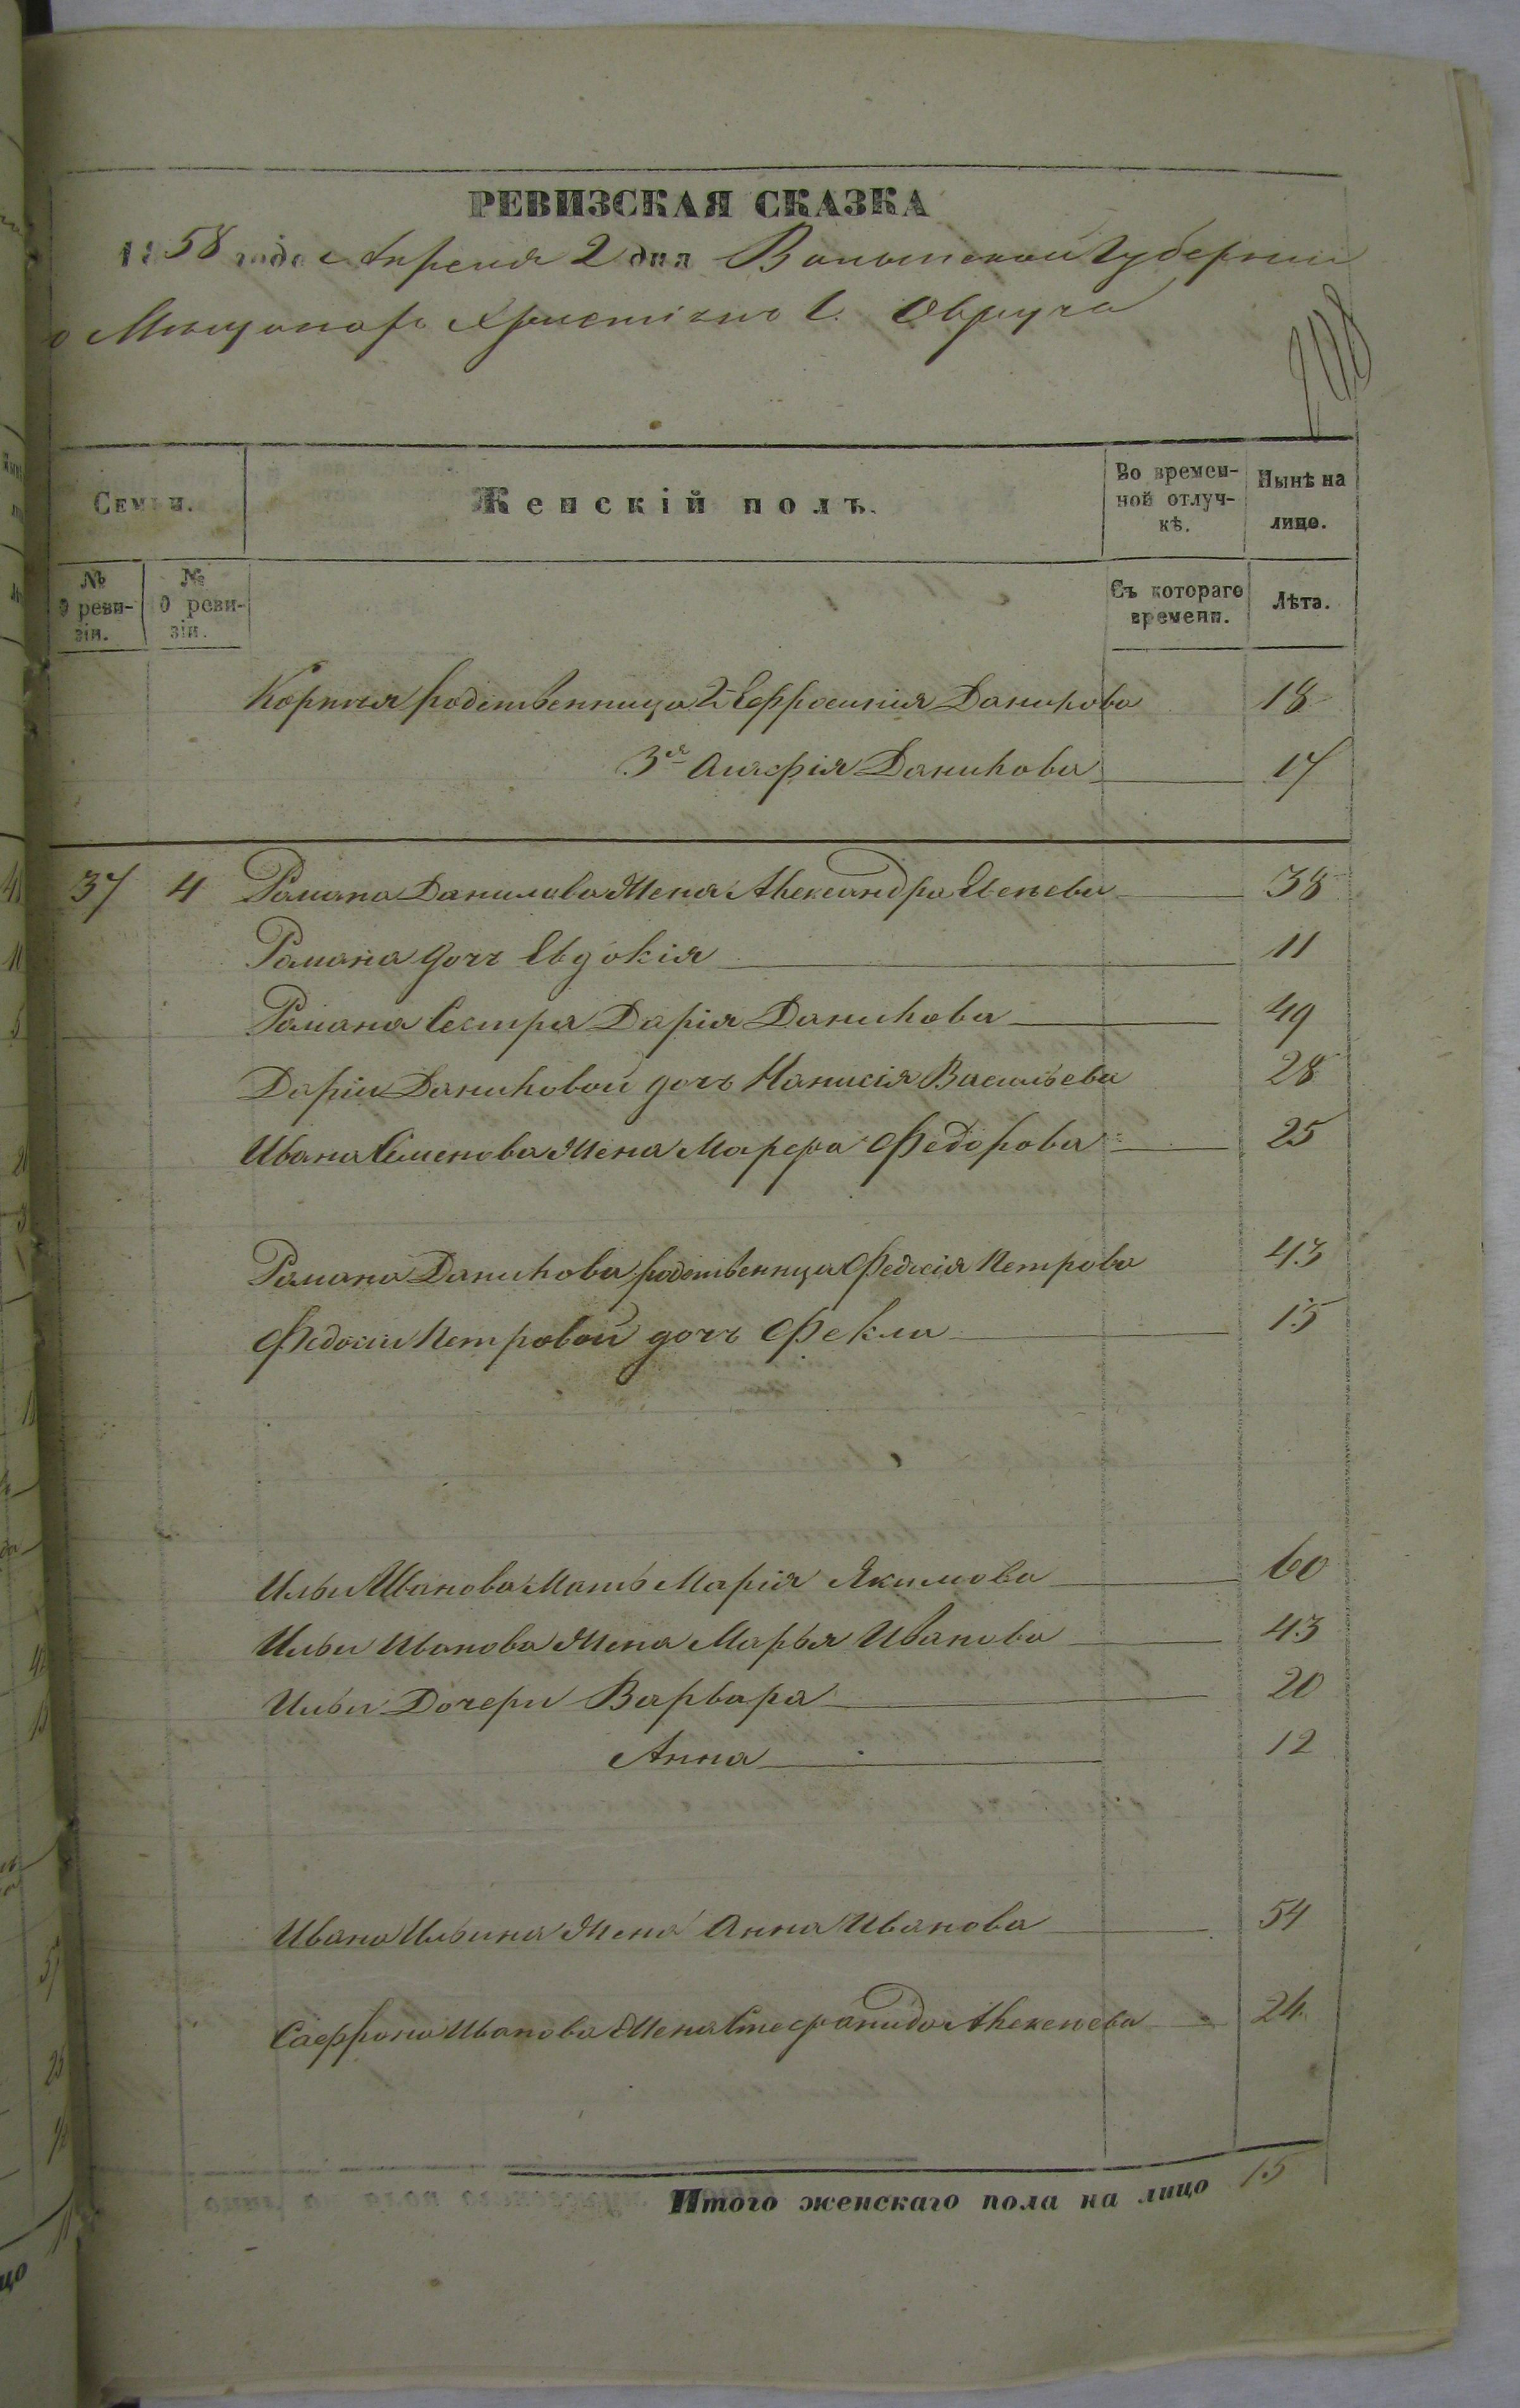 РЕВИЗСКАЯ СКАЗКА
1858 года Апреля 2 дня Волынской Губернии
о Мещанахъ Христіянъ Г. Овруча
Семьи.
Женскій полъ.
Во времен-
ной отлуч-
кѣ.
Нынѣ на
лицо.
№
9 реви-
зіи.
№
0 реви-
зіи.
Съ котораго
времени.
Лѣта.
родственница 2я Еффросинія Данилова 18
3я Данилова 17
37 4 Романа Данилова жена Александра 38
Романа дочь Евдокія 11
Романа Сестра Дарія Данилова 49
Даріи Даниловой дочь Васильева 28
Ивана Семенова жена Марфа Федорова 25
Романа Данилова родственница Федосія Петрова 43
Федосіи Петровой дочь Фекла 15
Ильи Иванова Мать Марія Якимова 60
Ильи Иванова жена Марья Иванова 43
Ильи Дочери Варвара 20
Анна 12
Ивана Ильина жена Анна Иванова 54
Саффрона Иванова жена Стефанида Алексеева 24
Итого женскаго пола на лицо 15